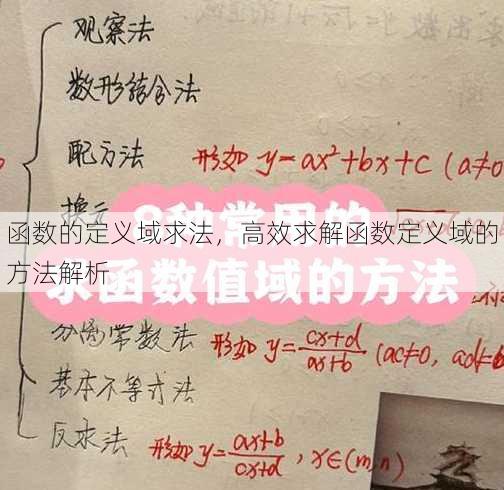 观察法
数形结合法
配方法 形如 y=ax²+bx+c (a≠0
换元
8种常用的
函数的定义域求法，高效求解函数定义域的
求函数值域的方法
方法解析
分离常数法 形如 y=cx+d/ax+b (ac≠0, ad≠b
基本不等式法
反求法 形如 y=ax+b/cx+d , x∈(m,n)